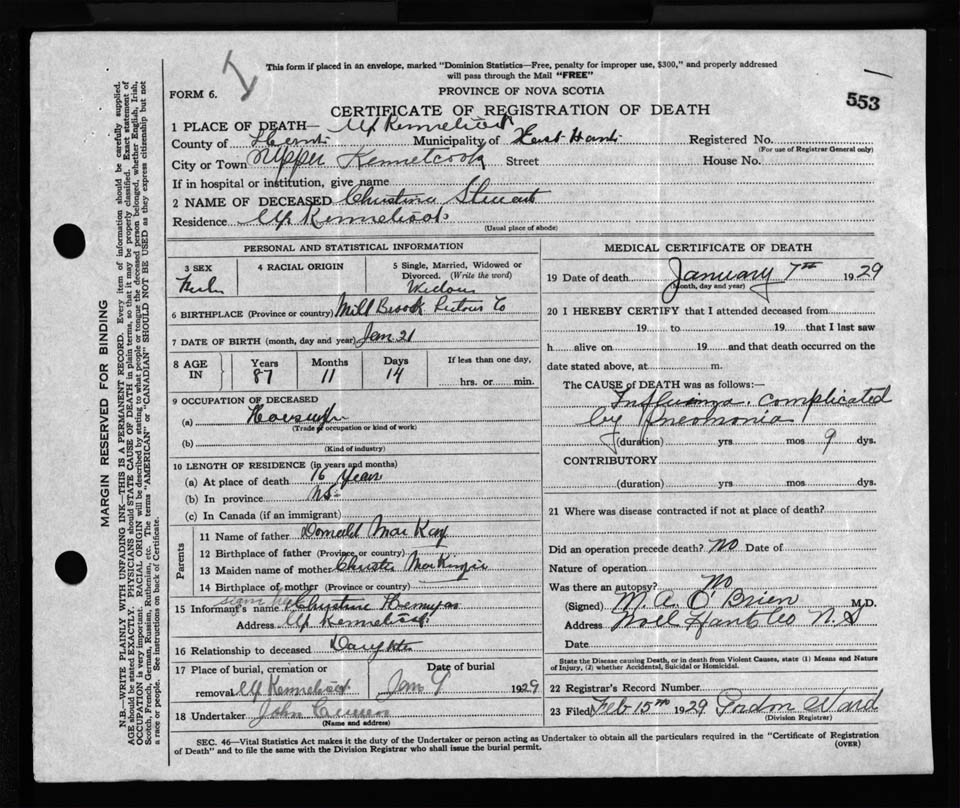 This form if placed in an envelope, marked "Dominion Statistics—Free, penalty for improper use, $300," and properly addressed
will pass through the Mail "FREE"
FORM 6.
PROVINCE OF NOVA SCOTIA
553
CERTIFICATE OF REGISTRATION OF DEATH
1 PLACE OF DEATH— Up Kennetcook
County of Hants Municipality of East Hants Registered No.
(For use of Registrar General only)
City or Town Upper Kennetcook Street House No.
If in hospital or institution, give name
2 NAME OF DECEASED Christina Stewart
Residence Up Kennetcook
(Usual place of abode)
PERSONAL AND STATISTICAL INFORMATION
3 SEX
4 RACIAL ORIGIN
5 Single, Married, Widowed or
Divorced. (Write the word)
6 BIRTHPLACE (Province or country) Mill Brook Pictou Co
7 DATE OF BIRTH (month, day and year) Jan 21
8 AGE IN
Years 87
Months 11
Days 14
If less than one day,
hrs. or min.
9 OCCUPATION OF DECEASED
(a)
(Trade, occupation or kind of work)
(b)
(Kind of industry)
10 LENGTH OF RESIDENCE (in years and months)
(a) At place of death 16 Years
(b) In province NS
(c) In Canada (if an immigrant)
Parents
11 Name of father Donald MacKay
12 Birthplace of father (Province or country)
13 Maiden name of mother Christie MacKinzie
14 Birthplace of mother (Province or country)
15 Informant's name Christine
Address Up Kennetcook
16 Relationship to deceased Daughter
17 Place of burial, cremation or
removal Up Kennetcook
Date of burial
Jan 9 1929
18 Undertaker John
(Name and address)
MEDICAL CERTIFICATE OF DEATH
19 Date of death January 7th 1929
(Month, day and year)
20 I HEREBY CERTIFY that I attended deceased from
19 to 19 that I last saw
h alive on 19 and that death occurred on the
date stated above, at m.
The CAUSE of DEATH was as follows:—
Influenza complicated
by Pneomonia
(duration) yrs mos 9 dys.
CONTRIBUTORY
(duration) yrs mos dys.
21 Where was disease contracted if not at place of death?
Did an operation precede death? No Date of
Nature of operation
Was there an autopsy? No
(Signed) M. A. O'Brien M.D.
Address Noel Hants Co N.S
Date
State the Disease causing Death, or in death from Violent Causes, state (1) Means and Nature
of Injury, (2) whether Accidental, Suicidal or Homicidal.
22 Registrar's Record Number
23 Filed Feb 15th 1929 Gordon Ward
(Division Registrar)
SEC. 46—Vital Statistics Act makes it the duty of the Undertaker or person acting as Undertaker to obtain all the particulars required in the "Certificate of Registration
of Death" and to file the same with the Division Registrar who shall issue the burial permit.
(OVER)
MARGIN RESERVED FOR BINDING
N.B.—WRITE PLAINLY WITH UNFADING INK—THIS IS A PERMANENT RECORD. Every item of information should be carefully supplied.
AGE should be stated EXACTLY. PHYSICIANS should STATE CAUSE OF DEATH in plain terms, so that it may be properly classified. Exact statement of
OCCUPATION is very important. RACIAL ORIGIN will be described by stating to what people or tongue the deceased person belonged, whether English, Irish,
Scotch, French, German, Russian, Ruthenian, etc. The terms "AMERICAN" or "CANADIAN" SHOULD NOT BE USED as they express citizenship but not
a race or people. See instructions on back of Certificate.